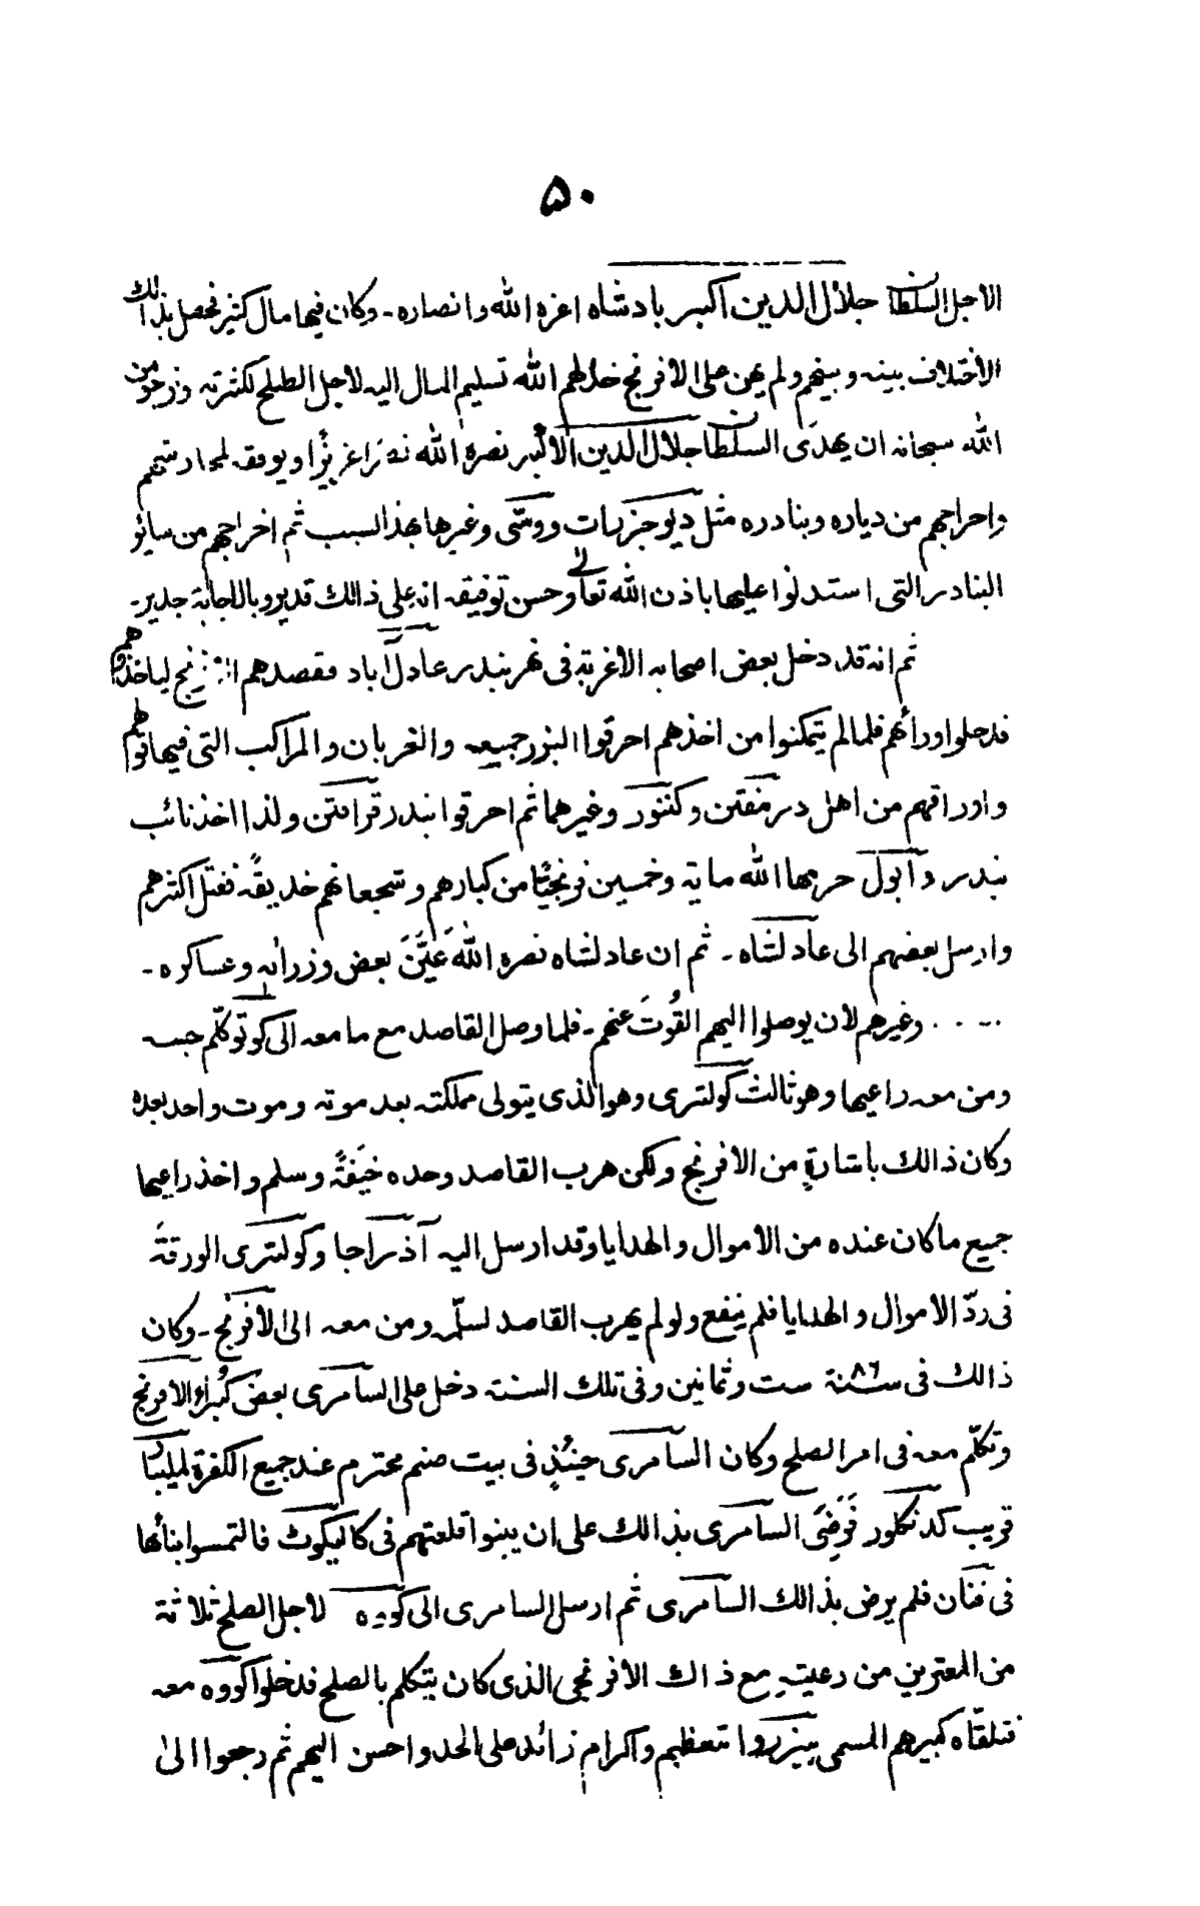 ۵۰
الاجل السلطان جلال الدين اكبر بادشاه اعزه الله وانصاره ـ وكان فيها مال كثير فحصل بذالك
الاختلاف بينه وبينهم ولم يهن على الافرنج خذلهم الله تسليم المال اليه لاجل الصلح لكثرته ونرجو من
الله سبحانه ان يهدى السلطان جلال الدين الاكبر نصره الله نصرا عزيزًا ويوفقه لمحاربتهم
واخراجهم من دياره وبنادره مثل ديو جزرات ووسّى وغيرها بهذا السبب ثم اخراجهم من سائر
البنادر التى استدلوا عليها باذن الله تعالى وحسن توفيقه انه على ذالك قدير وبالاجابة جدير ـ
ثم انه قد دخل بعض اصحابه الاغربة فى نهر بندر عادل آباد فقصدهم الافرنج لياخذوهم
فدخلوا ورائهم فلما لم يتمكنوا من اخذهم احرقوا البندر جميعه والغربان والمراكب التى فيها
واوراقهم من اهل درمفتن وكننور وغيرهما ثم احرقوا بندر قرافتن ولذا اخذ نائب
بندر دابول حرسها الله ماية وخمسين فرنجيًا من كبارهم وشجعانهم خديقةً فقتل اكثرهم
وارسل بعضهم الى عادلشاه ـ ثم ان عادلشاه نصره الله عَيَّنَ بعض وزرائه وعساكره ـ
.... وغيرهم لان يوصلوا اليهم القُوتَ عنهم ـ فلما وصل القاصد مع ما معه الى كوتوكلّم حبسه
ومن معه راعيها وهو ثالث كولترى وهو الذى يتولى مملكته بعد موته وموت واحد بعده
وكان ذالك باشارةٍ من الافرنج ولكن هرب القاصد وحده خَيفةً وسلم واخذ راعيها
جميع ما كان عنده من الاموال والهدايا وقد ارسل اليه آذراجا وكولترى الورقةَ
فى ردّ الاموال والهدايا فلم ينفع ولو لم يهرب القاصد لسلّمه ومن معه الى الافرنج ـ وكان
ذالك فى سنة ٨٦ ست وثمانين وفى تلك السنة دخل على السامرى بعض كُبراء الافرنج
وتكلّم معه فى امر الصلح وكان السامرى حينئذٍ فى بيت صنم محترم عند جميع الكفرة لمليبار
قريب كدنكلور فَرَضَى السامرى بذالك على ان يبنوا قلعتهم فى كاليكوت فالتمسوا بنائها
فى فنان فلم يرض بذالك السامرى ثم ارسل السامرى الى كووه لاجل الصلح ثلاثة
من المعتبرين من رعيته مع ذاك الافرنجى الذى كان يتكلم بالصلح فدخلوا كووه معه
فتلقّاه كبيرهم المسمى بيزروا بتعظيم واكرام زائد على الحد واحسن اليهم ثم رجعوا الى